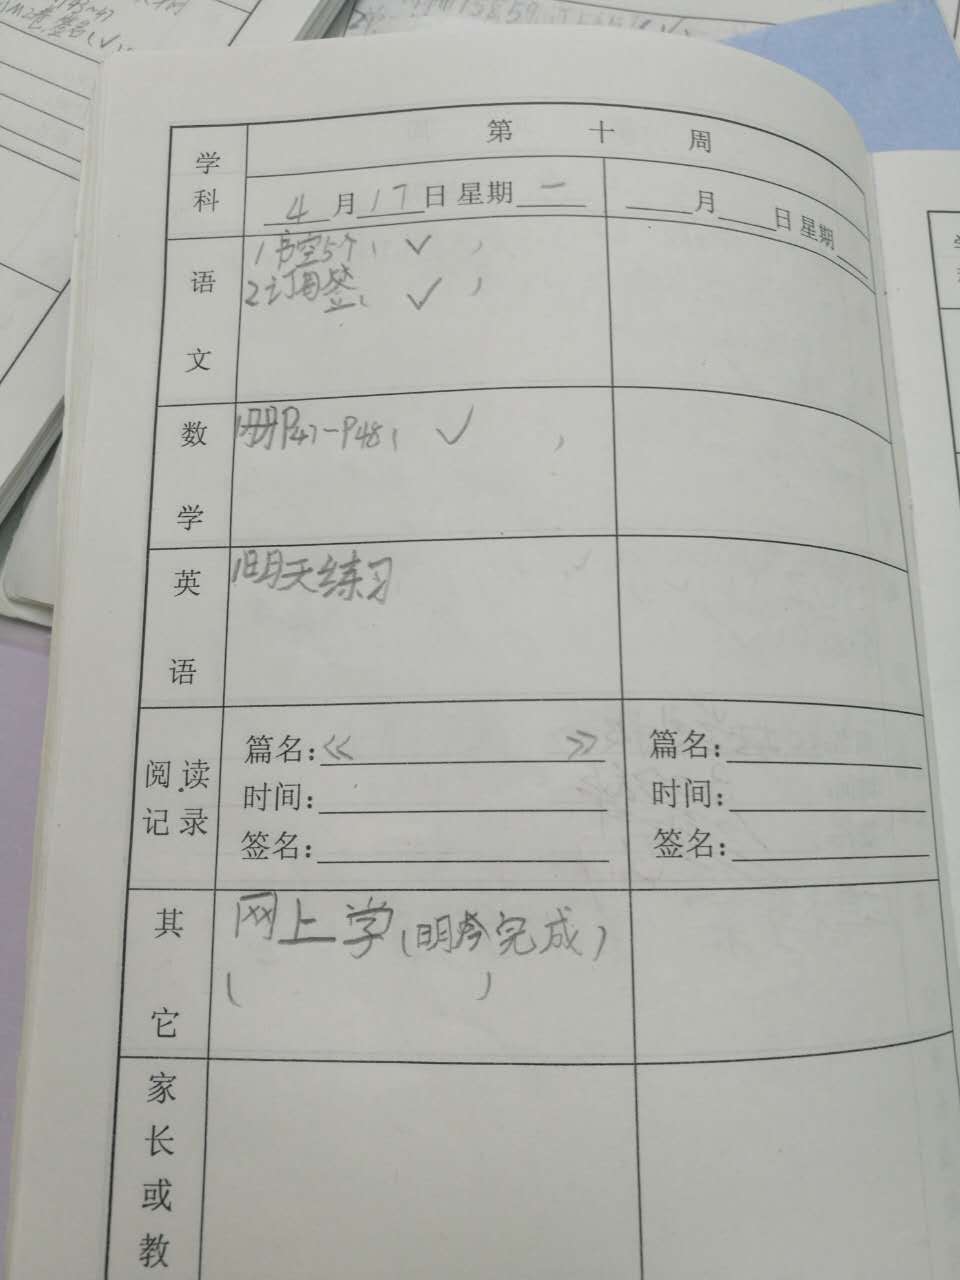 第十周
学科
4月17日星期一
月 日星期
语文
1书空5个( ✓ )
2订周签( ✓ )
数学
1册P47-P48( ✓ )
英语
1明天练习
阅读记录
篇名:《 》
篇名:
时间:
时间:
签名:
签名:
其它
网上学(明 完成)
( )
家长或教